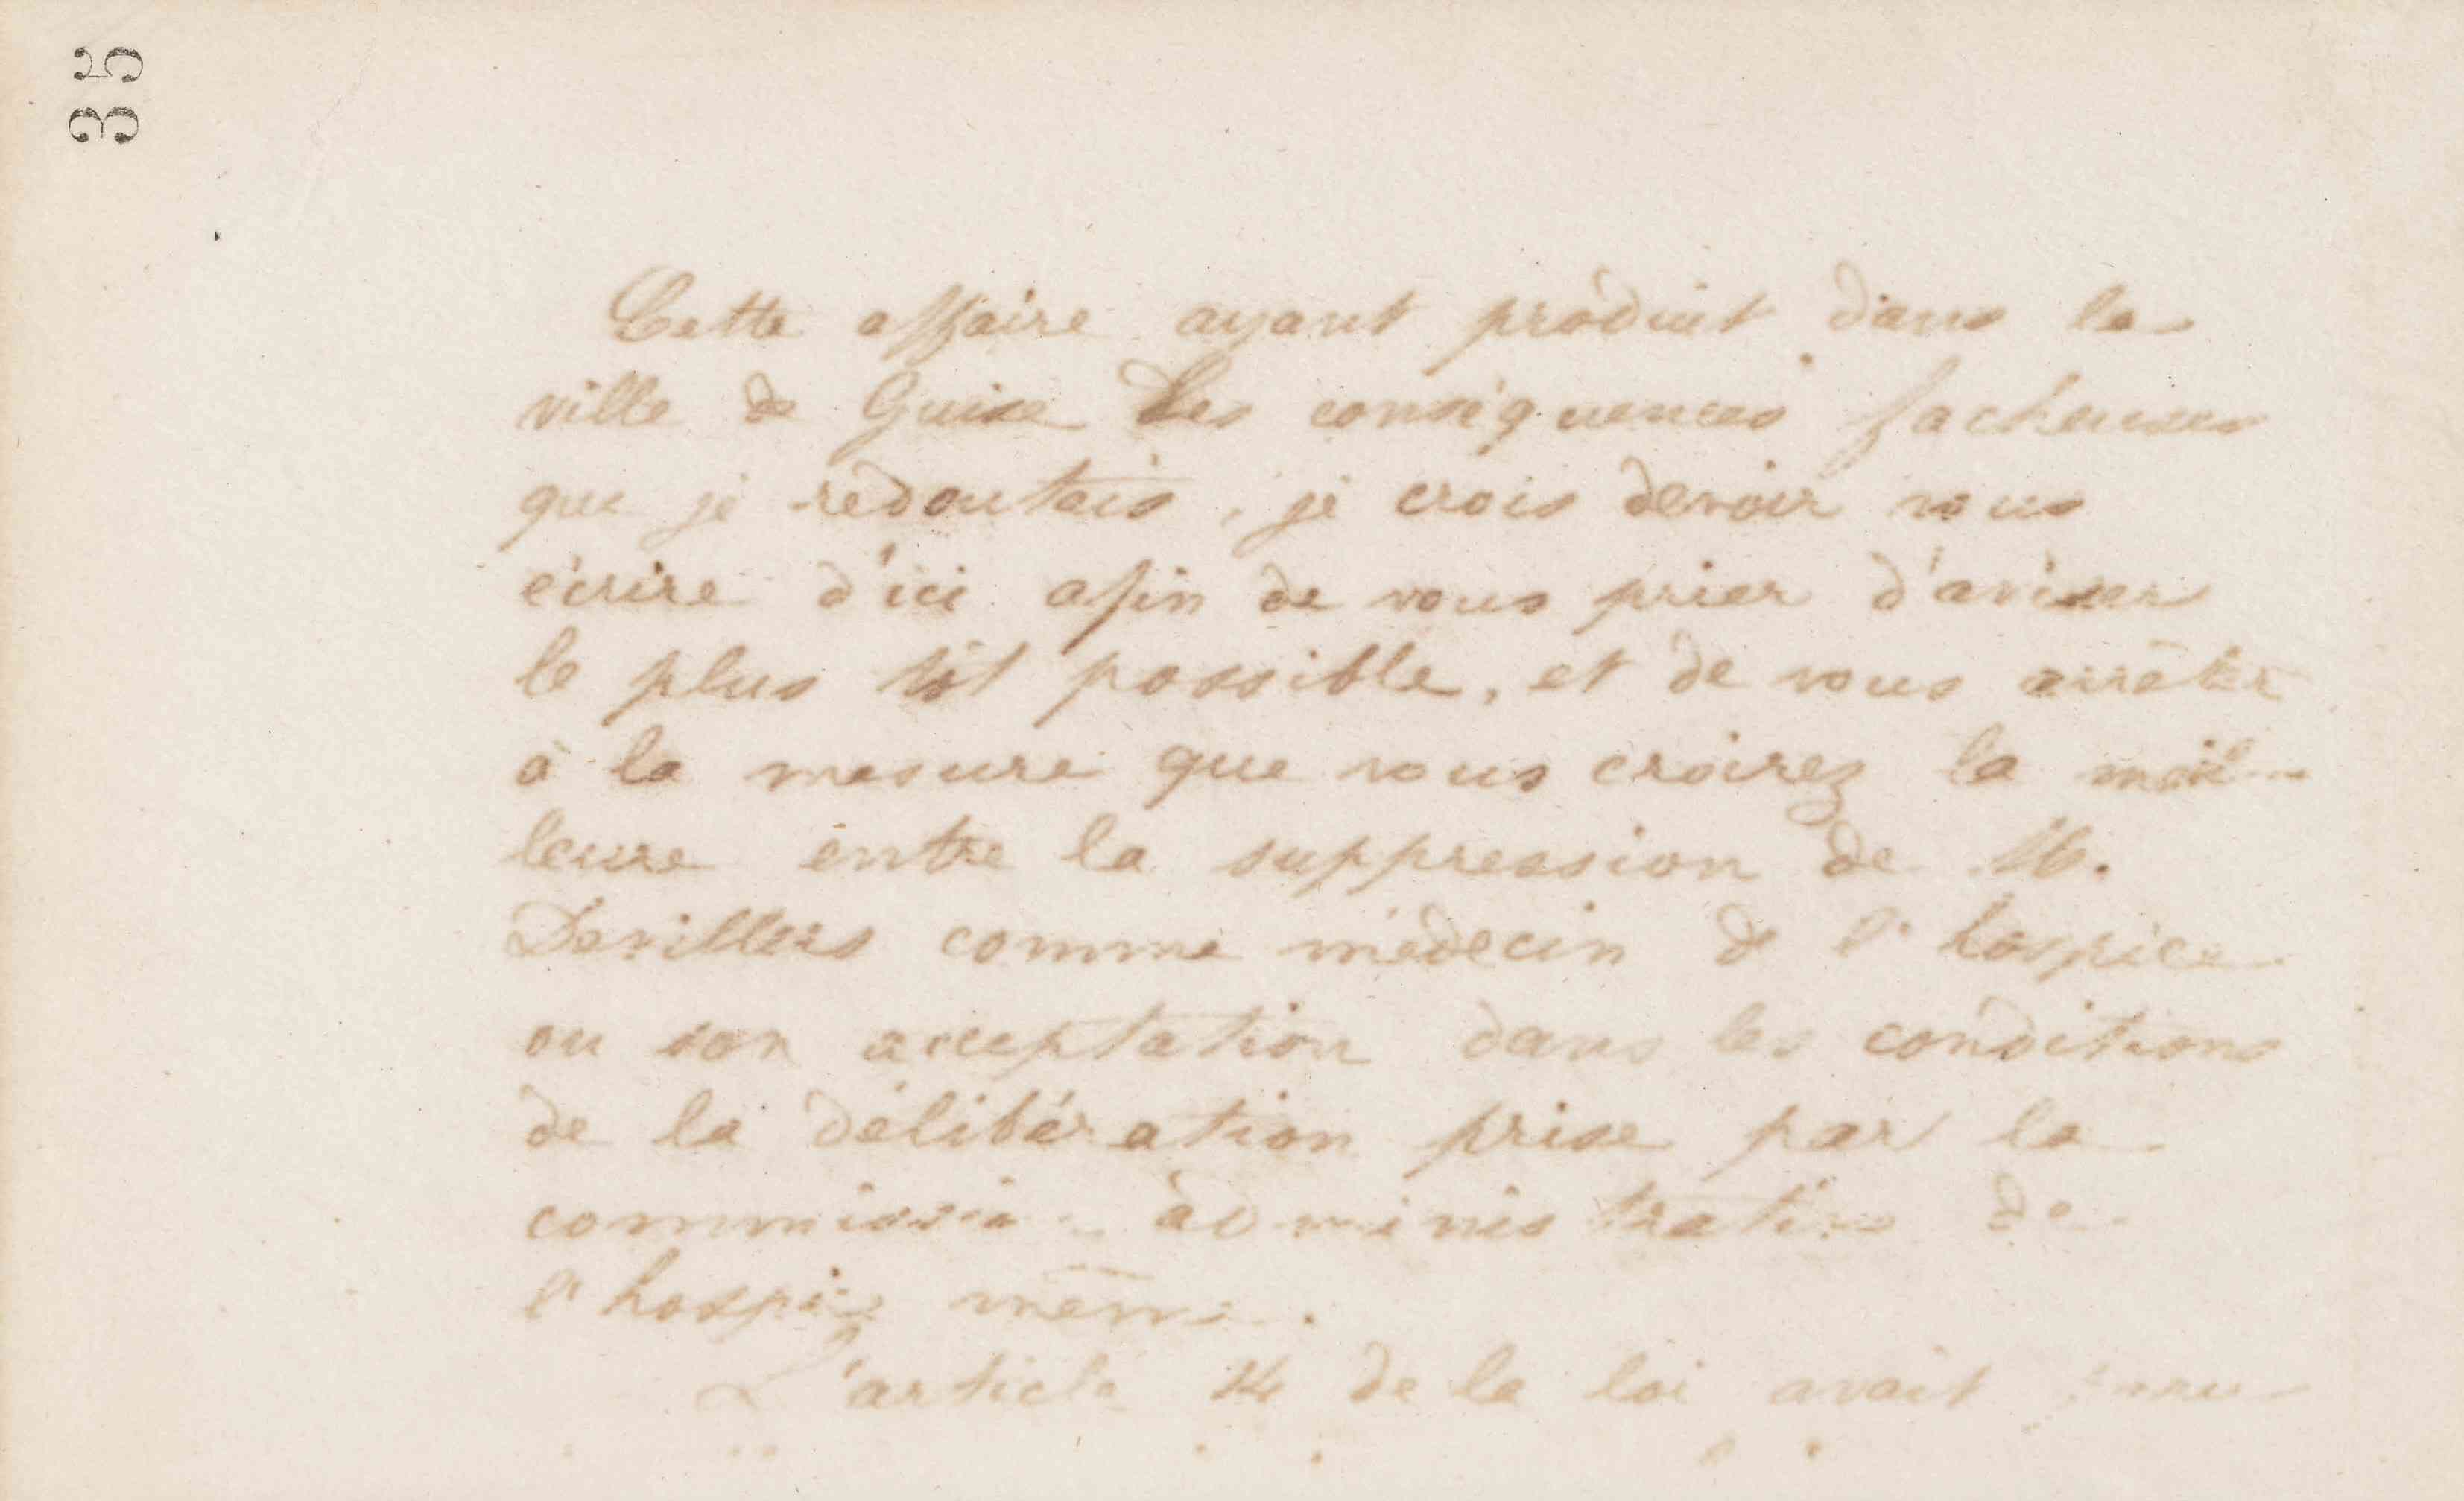 35
Cette affaire ayant produit dans la
ville de Guise les conséquences facheuses
que je redoutais, je crois devoir vous
écrire d'ici afin de vous prier d'aviser
le plus tôt possible, et de vous arrêter
à la mesure que vous croirez la meil-
leure entre la suppression de M.
Devillers comme médecin de l'hospice
ou son acceptation dans les conditions
de la délibération prise par la
commission administrative de
l'hospice même.
L'article 14 de la loi avait